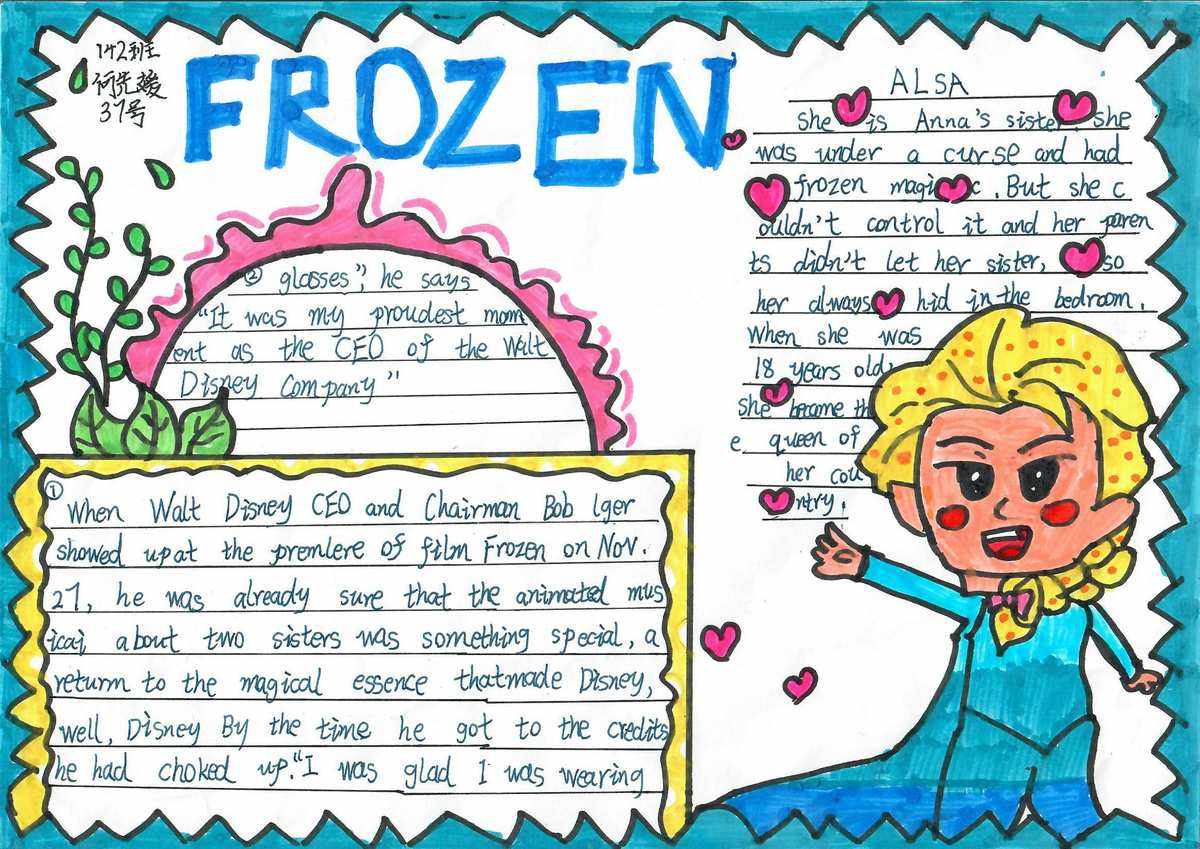 142班
何先媛
37号
FROZEN
ALSA
She is Anna's sister she
was under a curse and had
frozen magic. But she c
ouldn't control it and her paren
ts didn't let her sister, so
her always hid in the bedroom.
When she was
18 years old,
she become th
e queen of
her cou
ntry.
① When Walt Disney CEO and Chairman Bob lger
showed up at the premlere of film Frozen on Nov.
27, he was already sure that the animated mus
icai about two sisters was something special, a
returm to the magical essence thatmade Disney,
well, Disney By the time he got to the credits
he had choked up."I was glad I was wearing
② glosses", he says
"It was my proudest mom
ent as the CEO of the Walt
Disney Company"